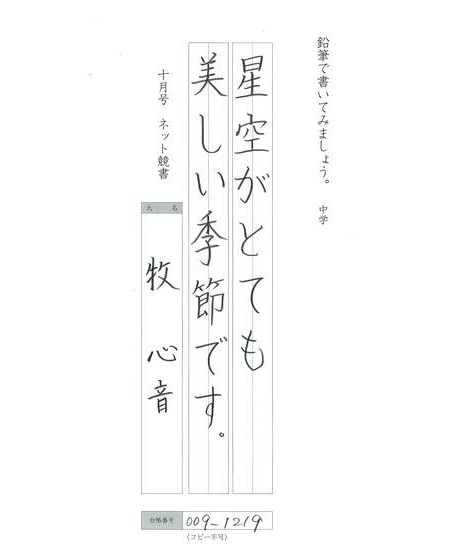 鉛筆で書いてみましょう。 中学
星空がとても
美しい季節です。
十月号 ネット競書
氏 名
牧 心音
台帳番号 009-1219
(コピー不可)